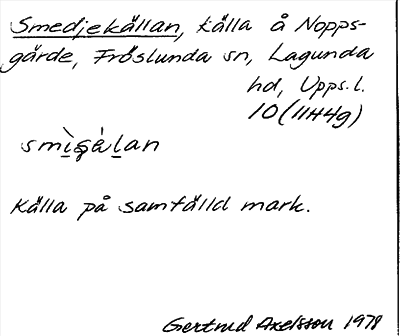 Smedjekällan, källa å Nopps-
gärde, Fröslunda sn, Lagunda
hd, Upps. l.
10 (11H4g)
källa på samfälld mark.
Gertrud Axelsson 1978